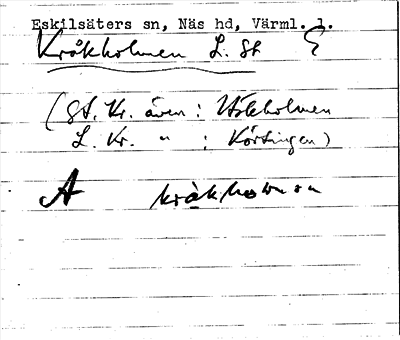 Eskilsäters sn, Näs hd, Värml. l.
Kråkholmen L. St.
(St. Kr. även: Utholmen
L. Kr. " : Körtingen)
A kråkholmen